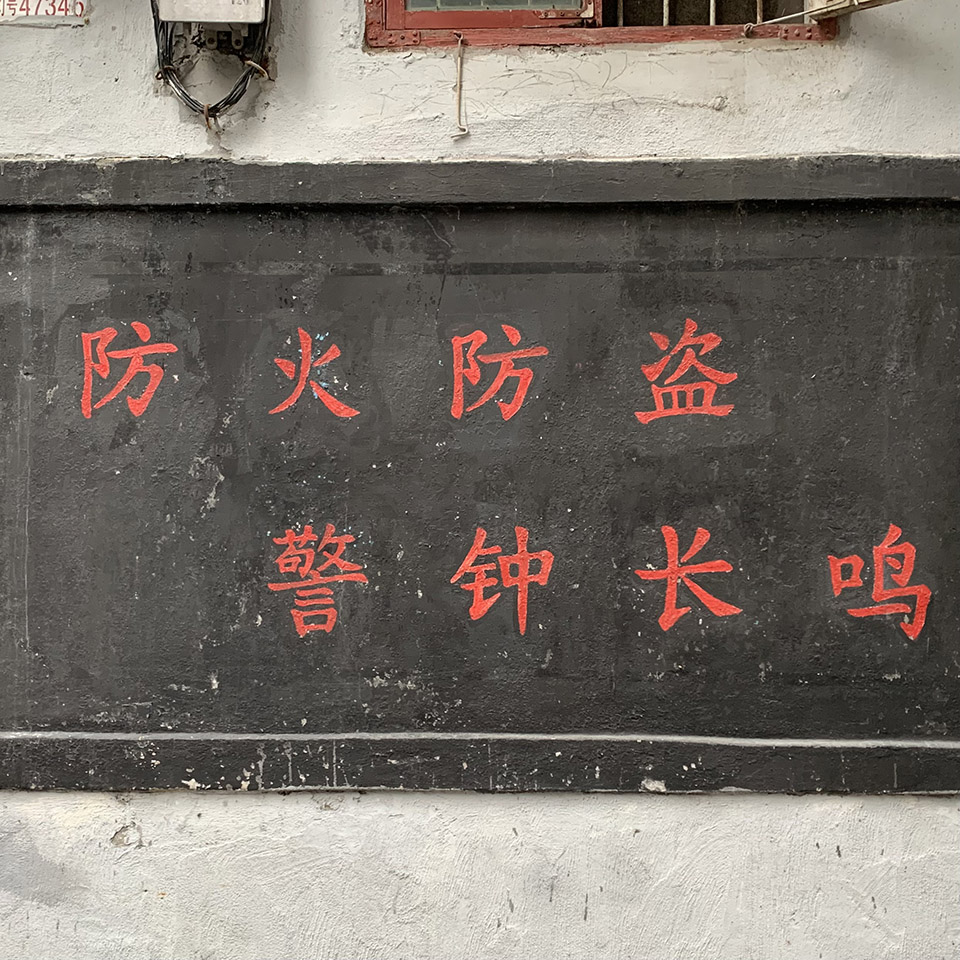 号47346
防火防盗
警钟长鸣